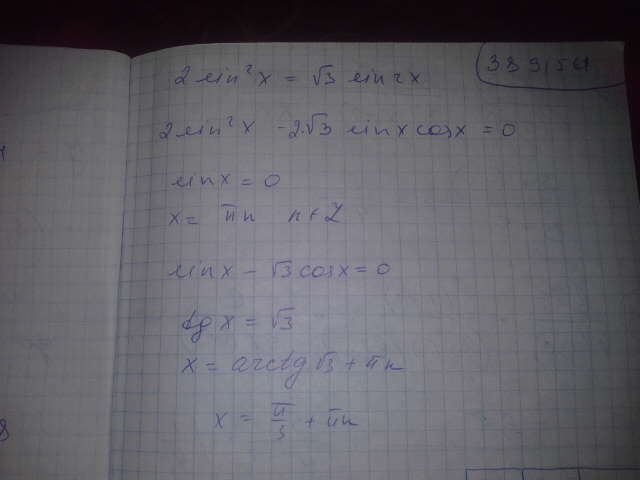 389,54
2 sin²x = √3 sin2x
2 sin²x - 2√3 sinx cosx = 0
sin x = 0
x = πn n ∈ Z
sin x - √3 cosx = 0
tg x = √3
x = arctg √3 + πn
x = π/3 + πn